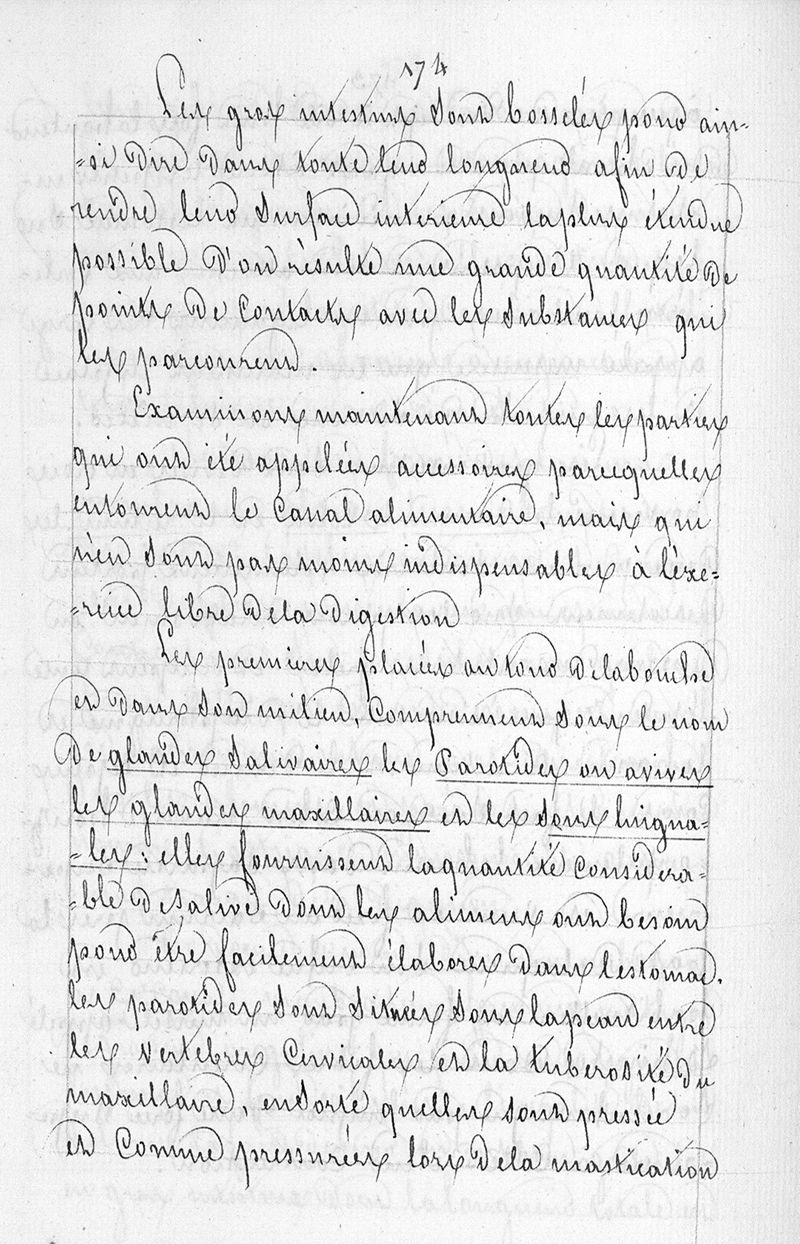 174
Les gros intestins sont bosselés pour ain-
-si dire dans toute leur longueur afin de
rendre leur surface interieure laplus étendue
possible d'ou résulte une grande quantité de
points de contacts avec les substances qui
les parcourent.
Examinons maintenant toutes les parties
qui ont été appelées accessoires parcequelles
entourent le canal alimentaire, mais qui
n'en sont pas moins indispensables à l'éxe-
-rcice libre dela digestion
Les premieres placées au tour delabouche
et dans son milieu, comprennent sous le nom
de glandes salivaires les Parotides ou avives
les glandes maxillaires et les sous lingua-
-les: elles fournissent laquantité considera-
-ble desalive dont les alimens ont besoin
pour être facilement élabores dans lestomac.
les parotides sont situées sous lapeau entre
les vertebres cervicales et la tuberosité du
maxillaire, ensorte quelles sont pressée
et comme pressurées lors dela mastication